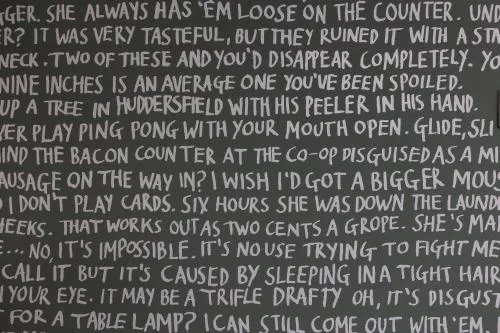 GGER. SHE ALWAYS HAS 'EM LOOSE ON THE COUNTER. UND
ER? IT WAS VERY TASTEFUL, BUT THEY RUINED IT WITH A STA
NECK. TWO OF THESE AND YOU'D DISAPPEAR COMPLETELY. YO
NINE INCHES IS AN AVERAGE ONE YOU'VE BEEN SPOILED.
UP A TREE IN HUDDERSFIELD WITH HIS PEELER IN HIS HAND.
VER PLAY PING PONG WITH YOUR MOUTH OPEN. GLIDE, SLI
IND THE BACON COUNTER AT THE CO-OP DISGUISED AS A MI
AUSAGE ON THE WAY IN? I WISH I'D GOT A BIGGER MOUS
O I DON'T PLAY CARDS. SIX HOURS SHE WAS DOWN THE LAUND
HEEKS. THAT WORKS OUT AS TWO CENTS A GROPE. SHE'S MA
E... NO, IT'S IMPOSSIBLE. IT'S NO USE TRYING TO FIGHT ME
CALL IT BUT IT'S CAUSED BY SLEEPING IN A TIGHT HAIR
N YOUR EYE. IT MAY BE A TRIFLE DRAFTY OH, IT'S DISGUST
T FOR A TABLE LAMP? I CAN STILL COME OUT WITH 'EM